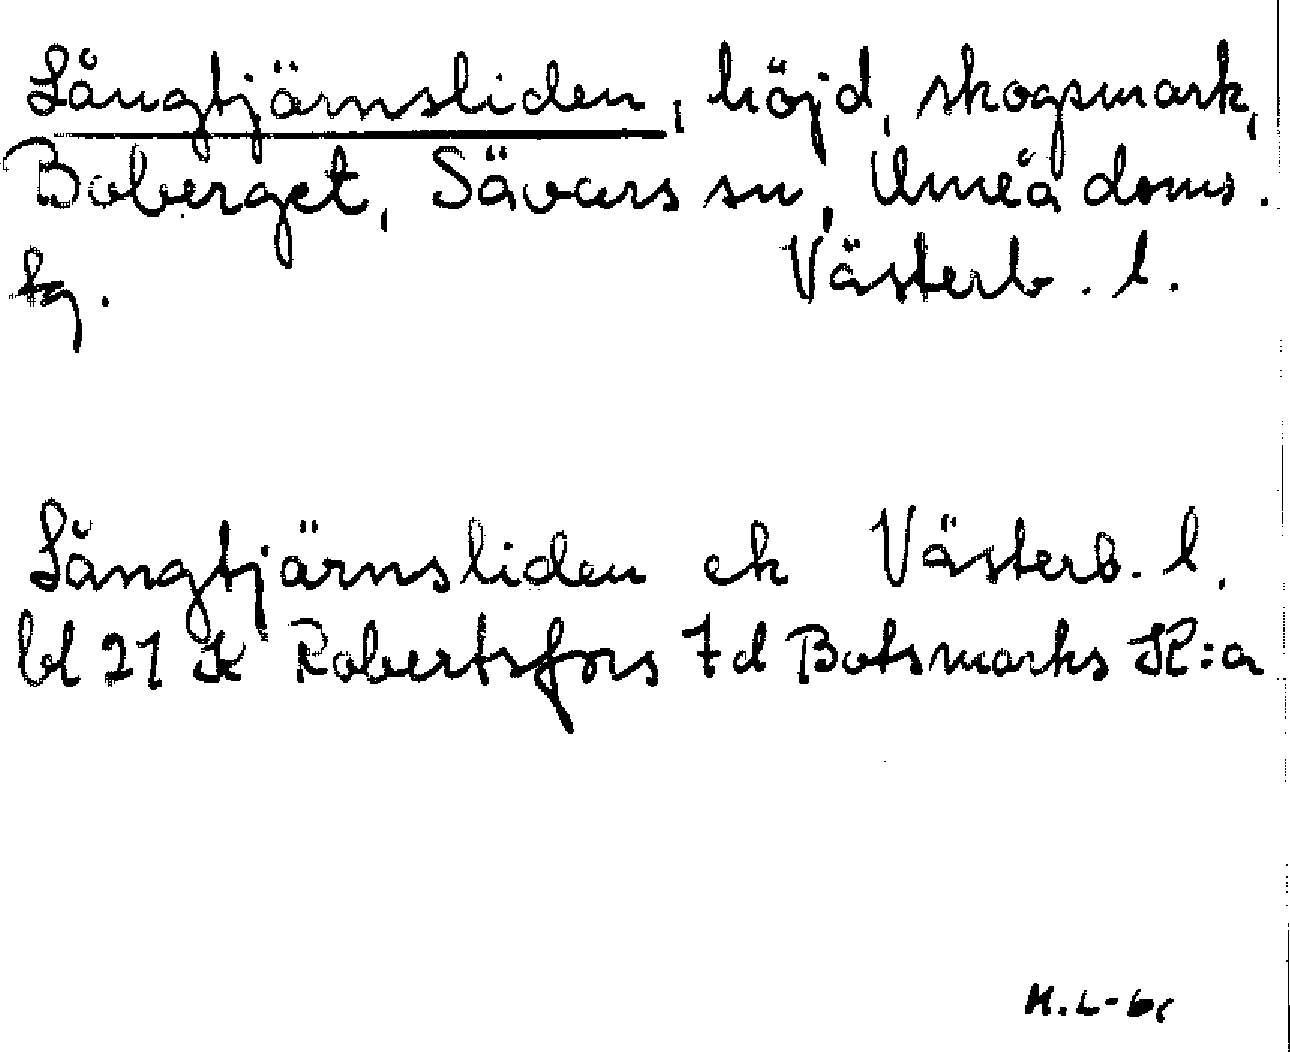 Långtjärnsliden, höjd, skogsmark,
Boberget, Sävars sn, Umeå doms.
tg. Västerb. l.
Långtjärnsliden ek Västerb. l.
bl 21 K Robertsfors 7d Botsmarks K:a